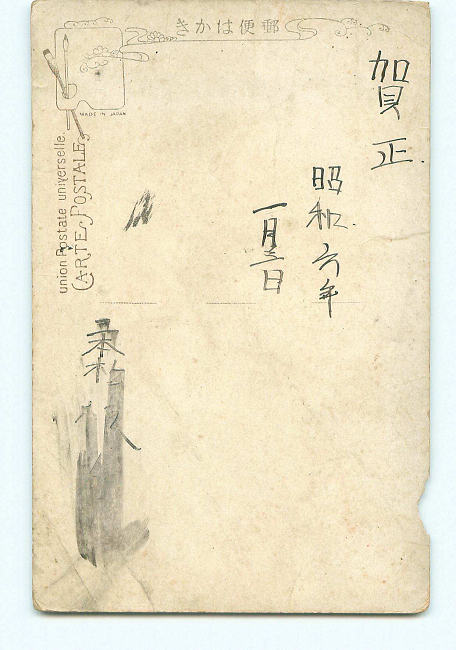 郵便はかき
MADE IN JAPAN
union Postale universelle.
CARTE POSTALE
賀正.
昭和六年
一月三日